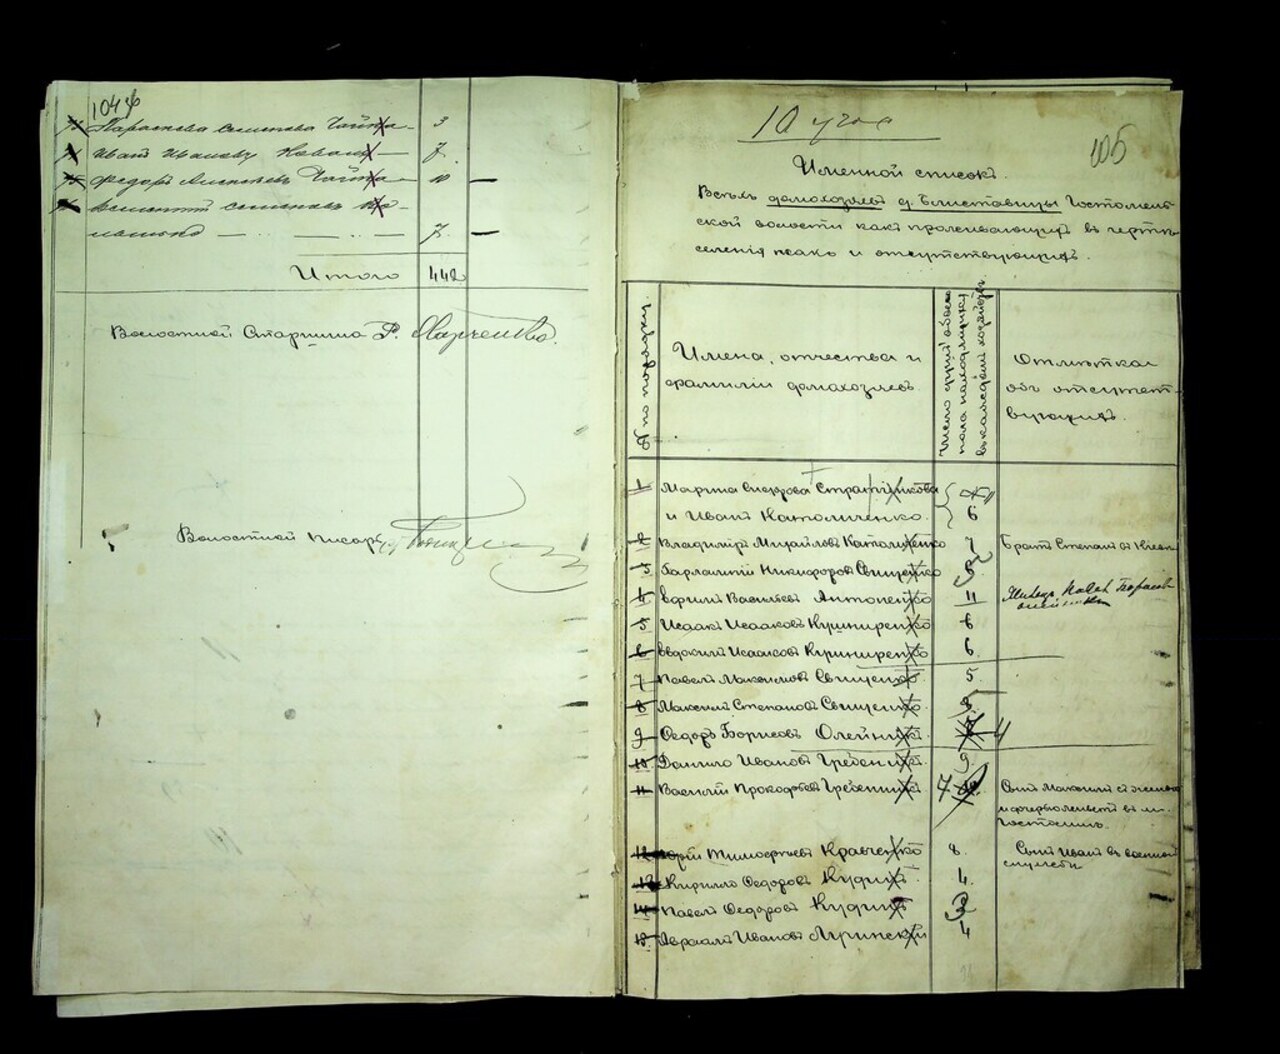 104
Параскева Семенова Чайка 3
Иванъ Ивановъ Коваль 7.
Федоръ Алексѣевъ Чайка 10
Семенов
7.
Итого 442
Волостной Старшина Ф. Марченко.
Волостной писарь
10 уча
105
Именной списокъ.
Всѣхъ домохозяевъ д. Блиставицы Гостомель-
ской волости какъ проживающихъ въ чертѣ
селенія такъ и отсутствующихъ.
№ по порядку.
Имена, отчества и
фамиліи домохозяевъ.
Число душъ обоего
пола находящихся
въ каждой хозяйствѣ
Отмѣтка
объ отсутст-
вующихъ.
1 Марѳа Сидорова
и Иванъ Католиченко. 6
2 Владиміръ Михайловъ Католиченко 7 Братъ Степанъ въ Кіевѣ
3 Варлампій Никифоровъ Свищенко
4 Ефимъ Васильевъ Антоненко 11
5 Исаакъ Исааковъ Кушниренко 6
6 Евдокимъ Исааковъ Кушниренко 6.
7 Павелъ Максимовъ Свищенко 5.
8 Максимъ Степановъ Свищенко
9 Федоръ Борисовъ Олейникъ. 4
10. Данило Ивановъ Гребеникъ. 9.
11 Василій Прокофьевъ Гребеникъ 7 Сынъ Максимъ съ женою
въ м.
Гостомлѣ.
12 Тимофѣевъ Кравченко 8. Сынъ Иванъ въ военной
службѣ
13 Кирилло Федоровъ Кудинъ. 4.
14 Павелъ Федоровъ Кудинъ
15. Авраамъ Ивановъ Лучинскій 4